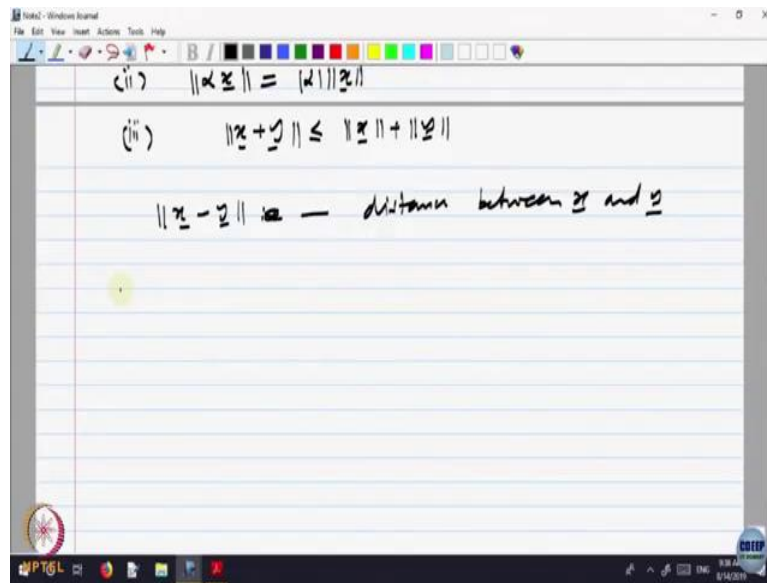 Note2 - Windows Journal
File Edit View Insert Actions Tools Help
(ii) ||α x|| = |α| ||x||
(iii) ||x + y|| ≤ ||x|| + ||y||
||x - y|| — distance between x and y
NPTEL
CDEEP
IIT BOMBAY
ENG
8/14/2019